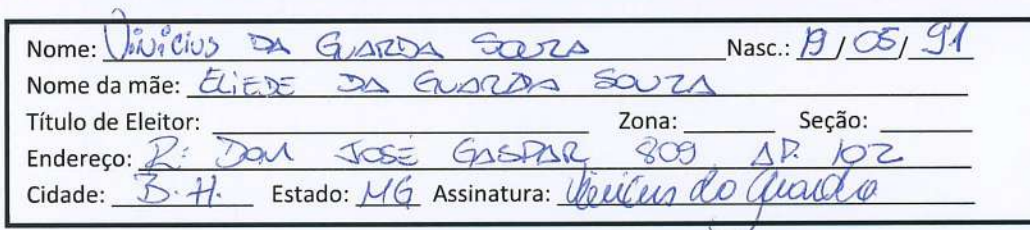 Nome: Vinicius DA GUARDA SOUZA Nasc.: 19/05/91
Nome da mãe: ELIEDE DA GUARDA SOUZA
Título de Eleitor: Zona: Seção:
Endereço: R: DOM JOSÉ GASPAR 809 AP. 102
Cidade: B.H. Estado: MG Assinatura: Vinicius da Guarda